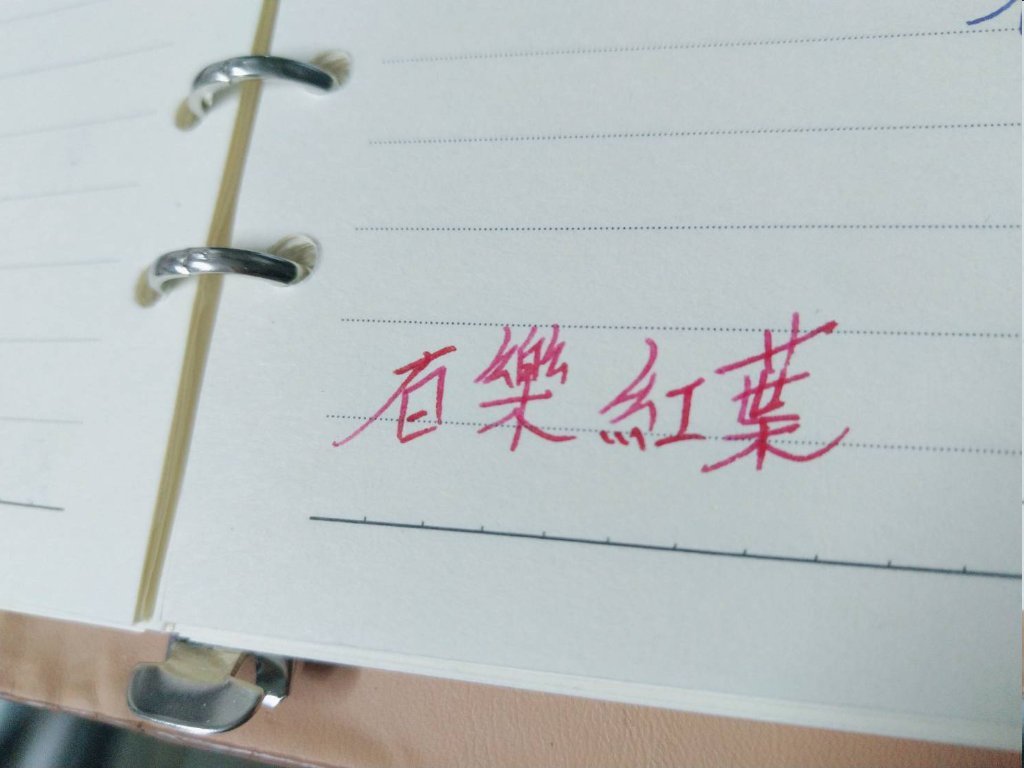 百樂紅葉